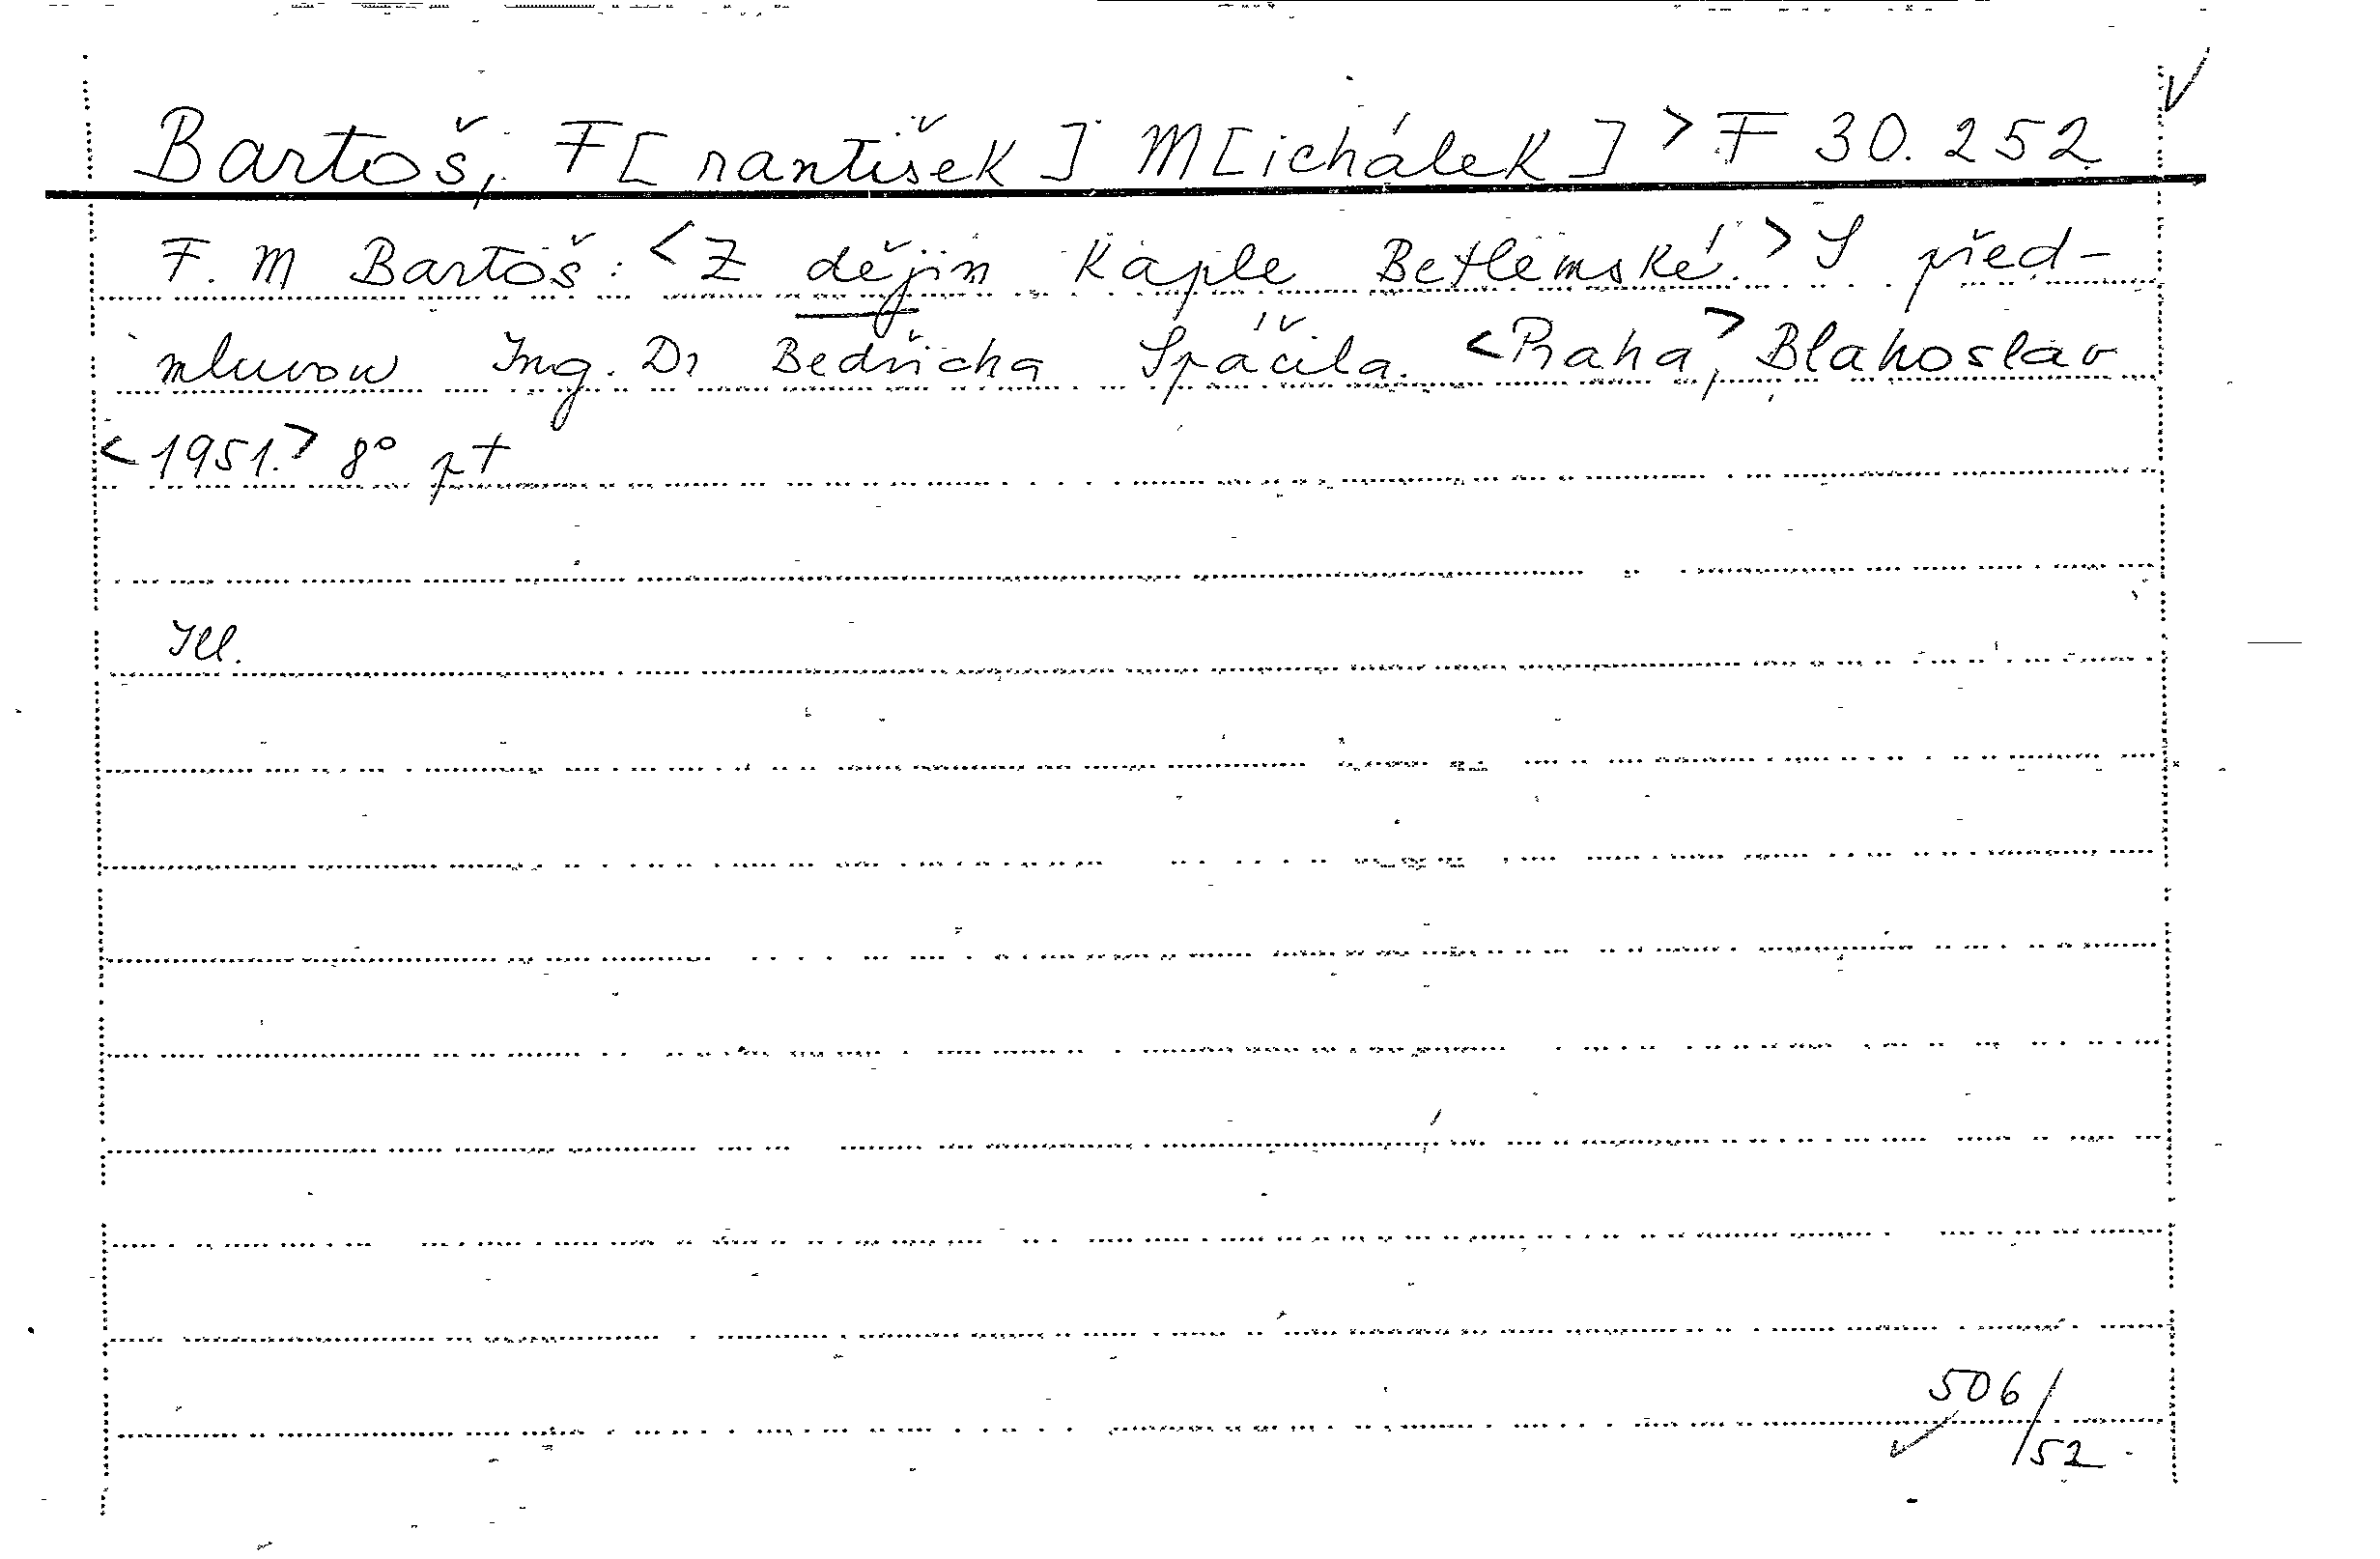 Bartoš, F[rantišek] M[ichálek] > F 30.252
F. M Bartoš: <Z dějin Kaple Betlémské.> S před-
mluvou Ing. Dr Bedřicha Špáčila. <Praha>, Blahoslav
<1951.> 8° pt
Ill.
506/
52